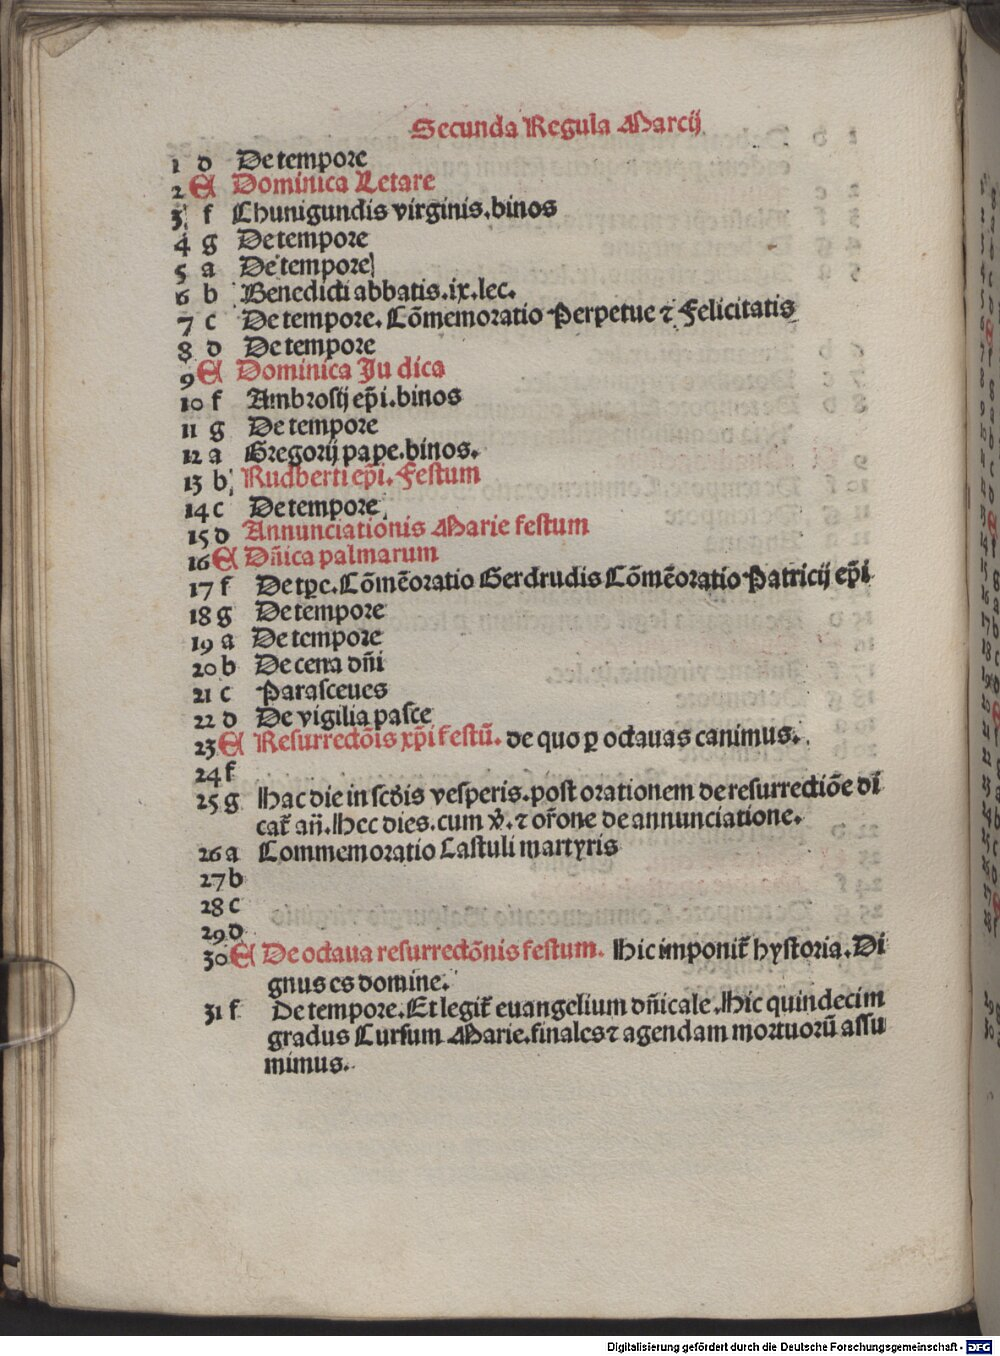 Secunda Regula Marcij
1 d De tempore
2 A Dominica Letare
3 f Chunigundis virginis.binos
4 g De tempore
5 a De tempore
6 b Benedicti abbatis.ix.lec.
7 c De tempore. Cõmemoratio Perpetue ⁊ Felicitatis
8 d De tempore
9 A Dominica Judica
10 f Ambrosij ep̃i.binos
11 g De tempore
12 a Gregorij pape.binos.
13 b Rudberti ep̃i. Festum
14 c De tempore
15 d Annunciationis Marie festum
16 A Dñica palmarum
17 f De tꝑe.Cõmẽoratio Gerdrudis Cõmẽoratio Patricij ep̃i
18 g De tempore
19 a De tempore
20 b De cena dñi
21 c Parasceues
22 d De vigilia pasce
23 A Resurrectõis xp̃i festũ. de quo ꝑ octauas canimus.
24 f
25 g Hac die in scḋis vesperis.post orationem de resurrectiõe di
cat̃ añ.Hec dies.cum v̇.⁊ or̃one de annunciatione.
26 a Commemoratio Castuli martyris
27 b
28 c
29 d
30 A De octaua resurrectõnis festum. Hic imponit̃ hystoria.Di
gnus es domine.
31 f De tempore.Et legit̃ euangelium dñicale.Hic quindecim
gradus Cursum Marie.finales ⁊ agendam mortuorũ assu
mimus.
Digitalisierung gefördert durch die Deutsche Forschungsgemeinschaft - DFG